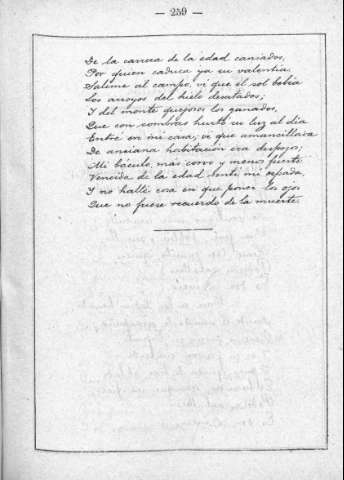 — 259 —
De la carrera de la edad cansados,
Por quien caduca ya su valentia.
Salime al campo, vi que el sol bebia
Los arroyos del hielo desatados;
Y del monte quejosos los ganados,
Que con sombras hurtó su luz al dia
Entré en mi casa; vi que amancillada
De anciana habitacion era despojos;
Mi báculo, más corvo y menos fuerte.
Vencida de la edad sentí mi espada,
Y no hallé cosa en que poner los ojos
Que no fuese recuerdo de la muerte.